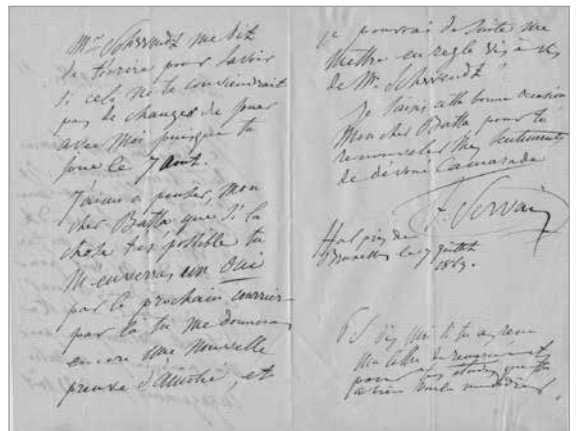 Mr Schwendt me dit
de t'écrire pour savoir
si cela ne te conviendrait
pas de changer de jour
avec moi puisque tu
joue le 7 Aout.
J'aime à penser, mon
cher Batta que si la
chose est possible tu
m'enverras un Oui
par le prochain courrier
par là tu me donneras
encore une nouvelle
preuve d'amitié, et
je pourrai de suite me
mettre en règle vis à vis
de Mr Schwendt
Je saisis cette bonne occasion
Mon cher Batta pour te
renouveler mes sentiments
de dévoué Camarade
F. Servais
Hal près de
Bruxelles le 7 juillet
1863.
P.S. dis moi si tu as reçu
ma lettre de
pour